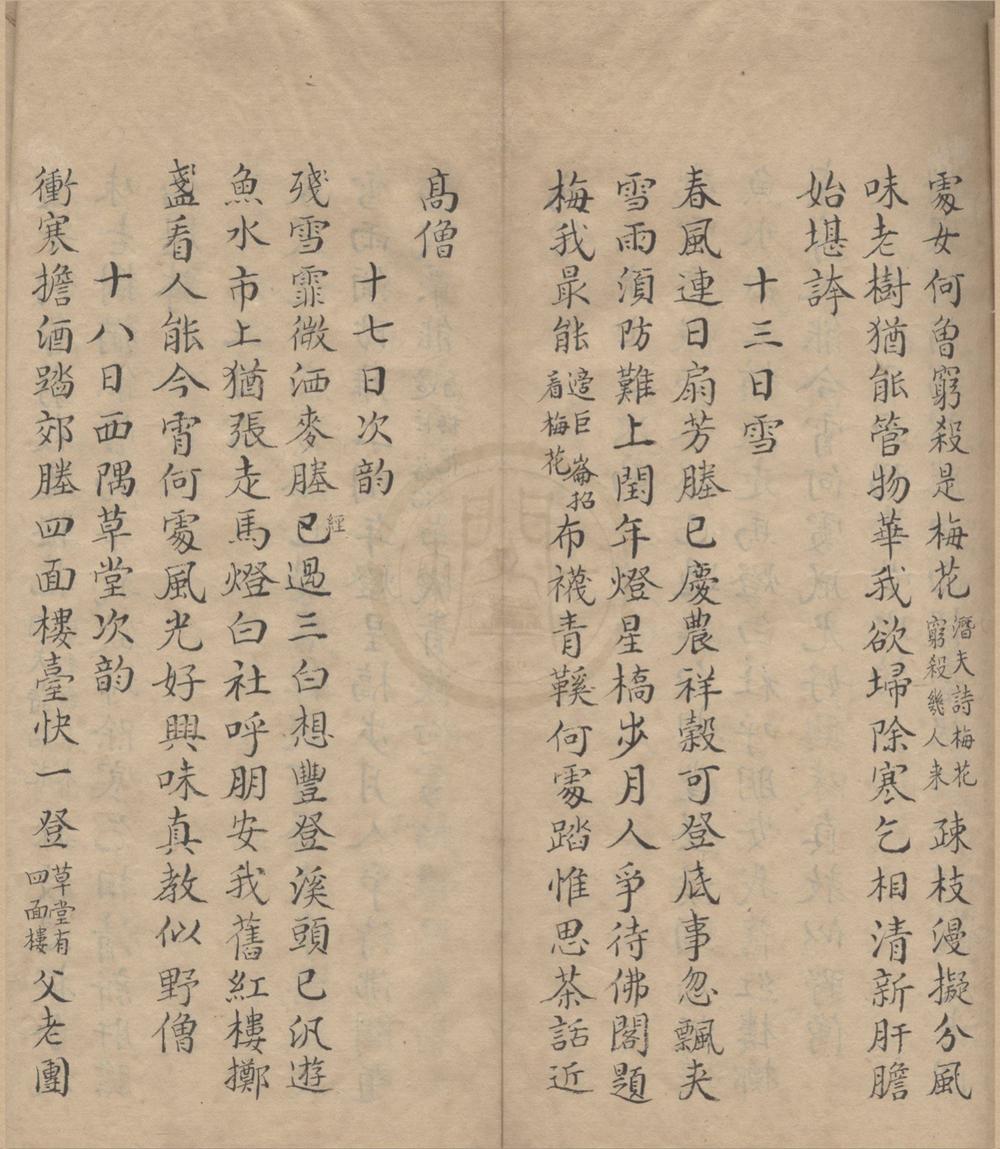 處女何魯窮殺是梅花潛夫詩梅花窮殺幾人来疎枝漫擬分風
味老樹猶能管物華我欲埽除寒乞相清新肝膽
始堪誇
十三日雪
春風連日扇芳塍已慶農祥穀可登底事忽飄夫
雪雨須防難上閏年燈星橋步月人爭待佛閣題
梅我最能逄巨崙招看梅花布襪青鞵何處踏惟思茶話近
髙僧
十七日次韵
殘雪霏微洒麥塍已經過三白想豐登溪頭已汎遊
魚水市上猶張走馬燈白社呼朋安我舊紅樓擲
盞看人能今宵何處風光好興味真教似野僧
十八日西隅草堂次韵
衝寒擔酒踏郊塍四面樓臺快一登草堂有四面樓父老團